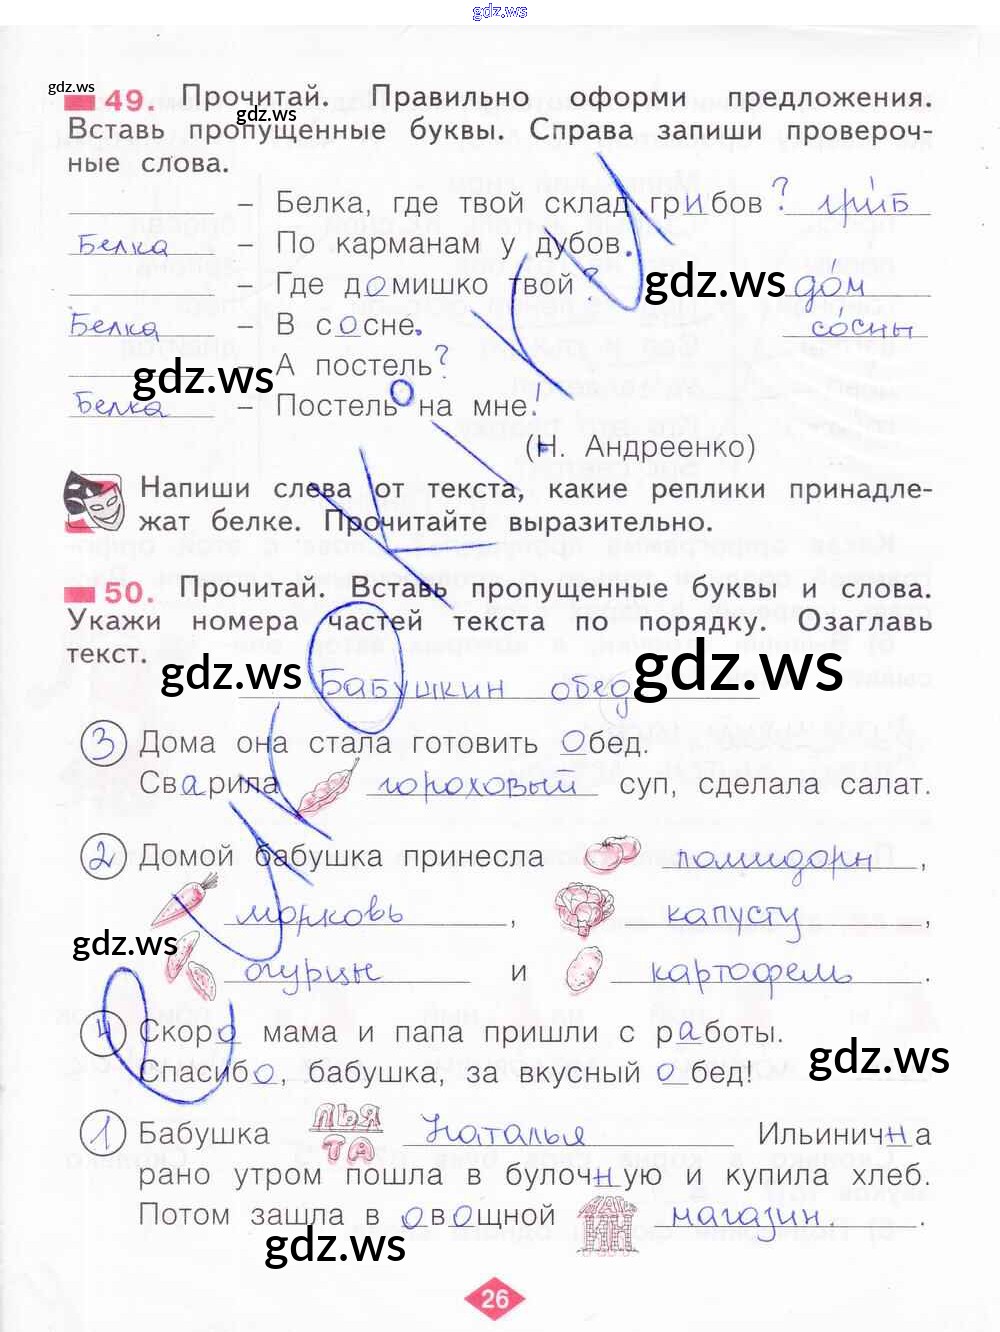 gdz.ws
gdz.ws
49. Прочитай. Правильно оформи предложения.
gdz.ws
Вставь пропущенные буквы. Справа запиши провероч-
ные слова.
– Белка, где твой склад грибов? гриб
Белка – По карманам у дубов.
– Где домишко твой? дом
gdz.ws
Белка – В сосне. сосны
– А постель?
gdz.ws
Белка – Постель на мне!
(Н. Андреенко)
Напиши слева от текста, какие реплики принадле-
жат белке. Прочитайте выразительно.
50. Прочитай. Вставь пропущенные буквы и слова.
Укажи номера частей текста по порядку. Озаглавь
текст.
gdz.ws
gdz.ws
Бабушкин обед
3 Дома она стала готовить обед.
Сварила гороховый суп, сделала салат.
2 Домой бабушка принесла помидоры,
морковь, капусту,
gdz.ws
огурцы и картофель.
4 Скоро мама и папа пришли с работы.
gdz.ws
Спасибо, бабушка, за вкусный обед!
ЛЬЯ
1 Бабушка Наталья Ильинична
ТА
рано утром пошла в булочную и купила хлеб.
Потом зашла в овощной магазин.
gdz.ws
26
СИКОЖКИ.КИ